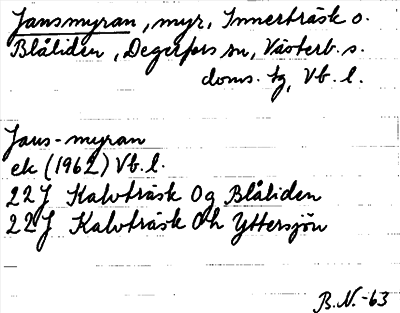 Jansmyran, myr, Innerträsk o.
Blåliden, Degerfors sn, Västerb. s.
doms. tg, Vb. l.
Jans-myran
ek (1962) Vb. l.
22J Kalvträsk 0g Blåliden
22J Kalvträsk 0h Yttersjön
B.N.-63